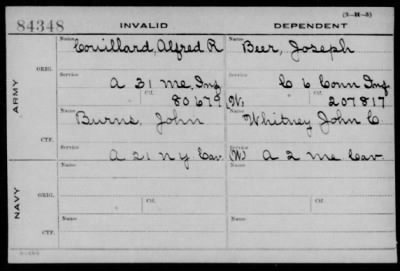 84348 INVALID DEPENDENT (3—H—3)
Name Couillard, Alfred R Name Beer, Joseph
ARMY
ORIG. Service A 31 Me. Inf Service C 6 Conn Inf
Ctf. 80679 (W) Ctf. 207817
Name Burns, John Name Whitney John C.
CTF. Service A 21 NY Cav. Service (W) A 2 Me Cav.
NAVY
Name Name
ORIG. Ctf. Ctf.
CTF. Name Name